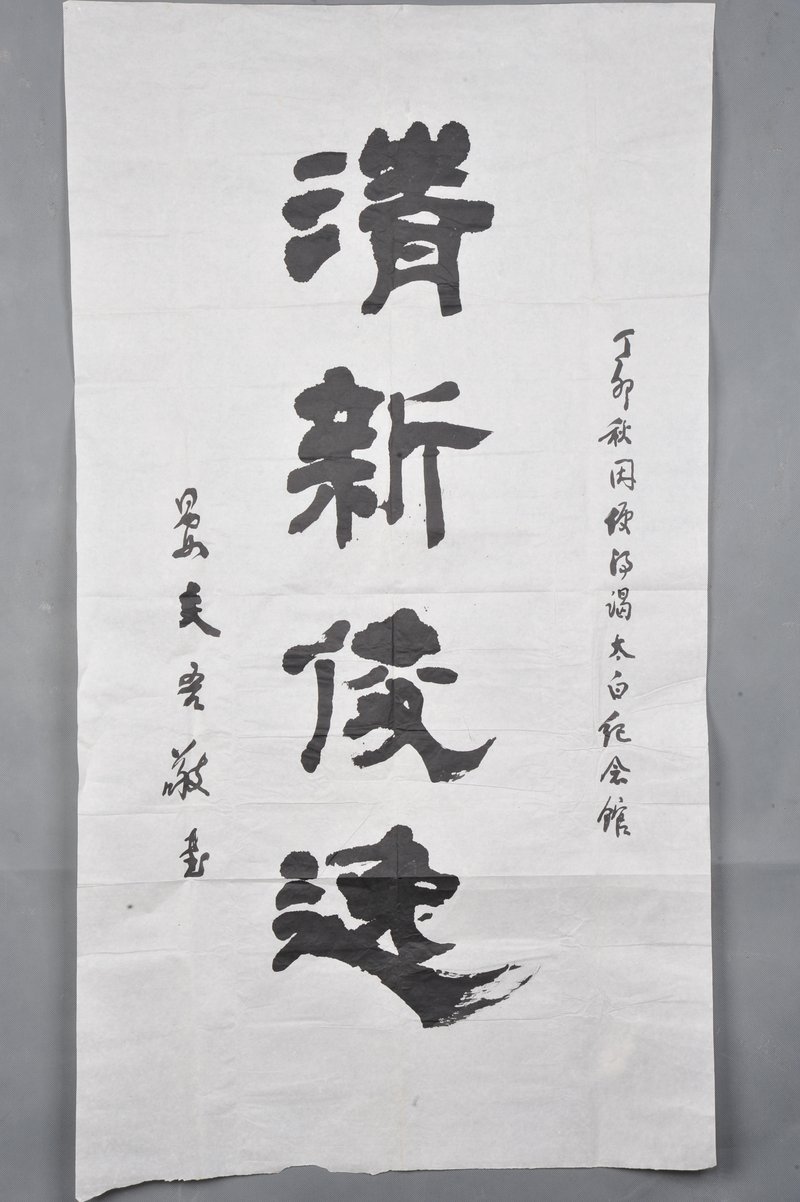 丁卯秋因便得谒太白纪念馆
清新俊逸
敬书